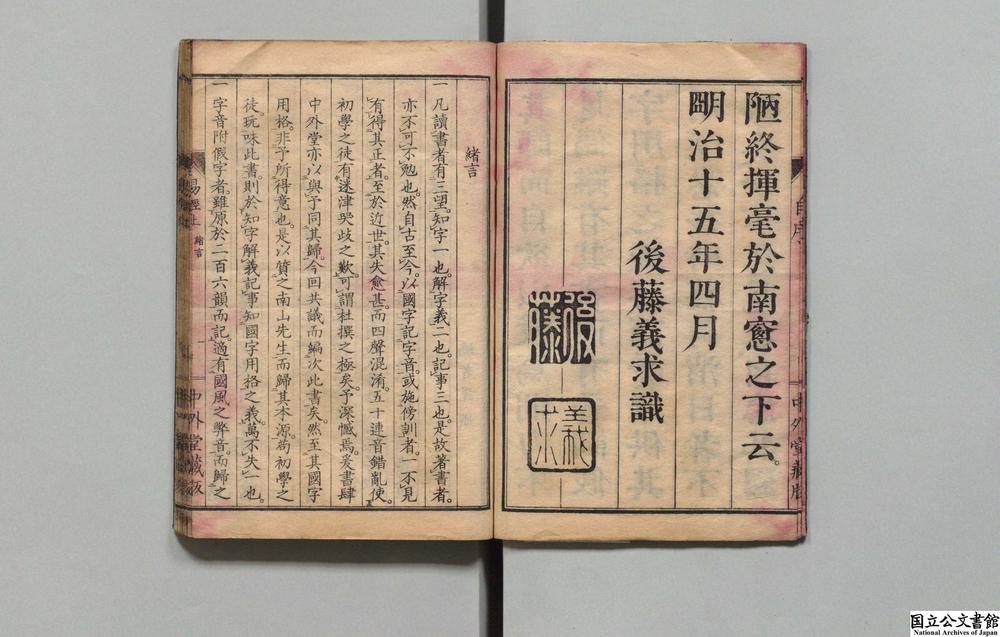 陋終揮毫於南窻之下云。
明治十五年四月
後藤義求識
後藤
義求
中外堂藏版
緒言
一凡讀書者有三望。知字一也。解字義二也。記事三也。是故著書者。
亦不可不勉也。然自古至今。以國字記字音。或施傍訓者。一不見
有得其正者。至於近世。其失愈甚。而四聲混淆。五十連音錯亂。使
初學之徒有迷津哭歧之歎。可謂杜撰之極矣。予深慽焉。爰書肆
中外堂亦以與予同其歸。今回共議而編次此書矣。然至其國字
用格。非予所得意也。是以質之南山先生而歸其本源。苟初學之
徒。玩味此書。則於知字解義記事知國字用格之義。萬不失一也。
一字音附假字者。雖原於二百六韻而記。適有國風之弊音。而歸之
易經上
緒言
中外堂藏板
国立公文書館
National Archives of Japan